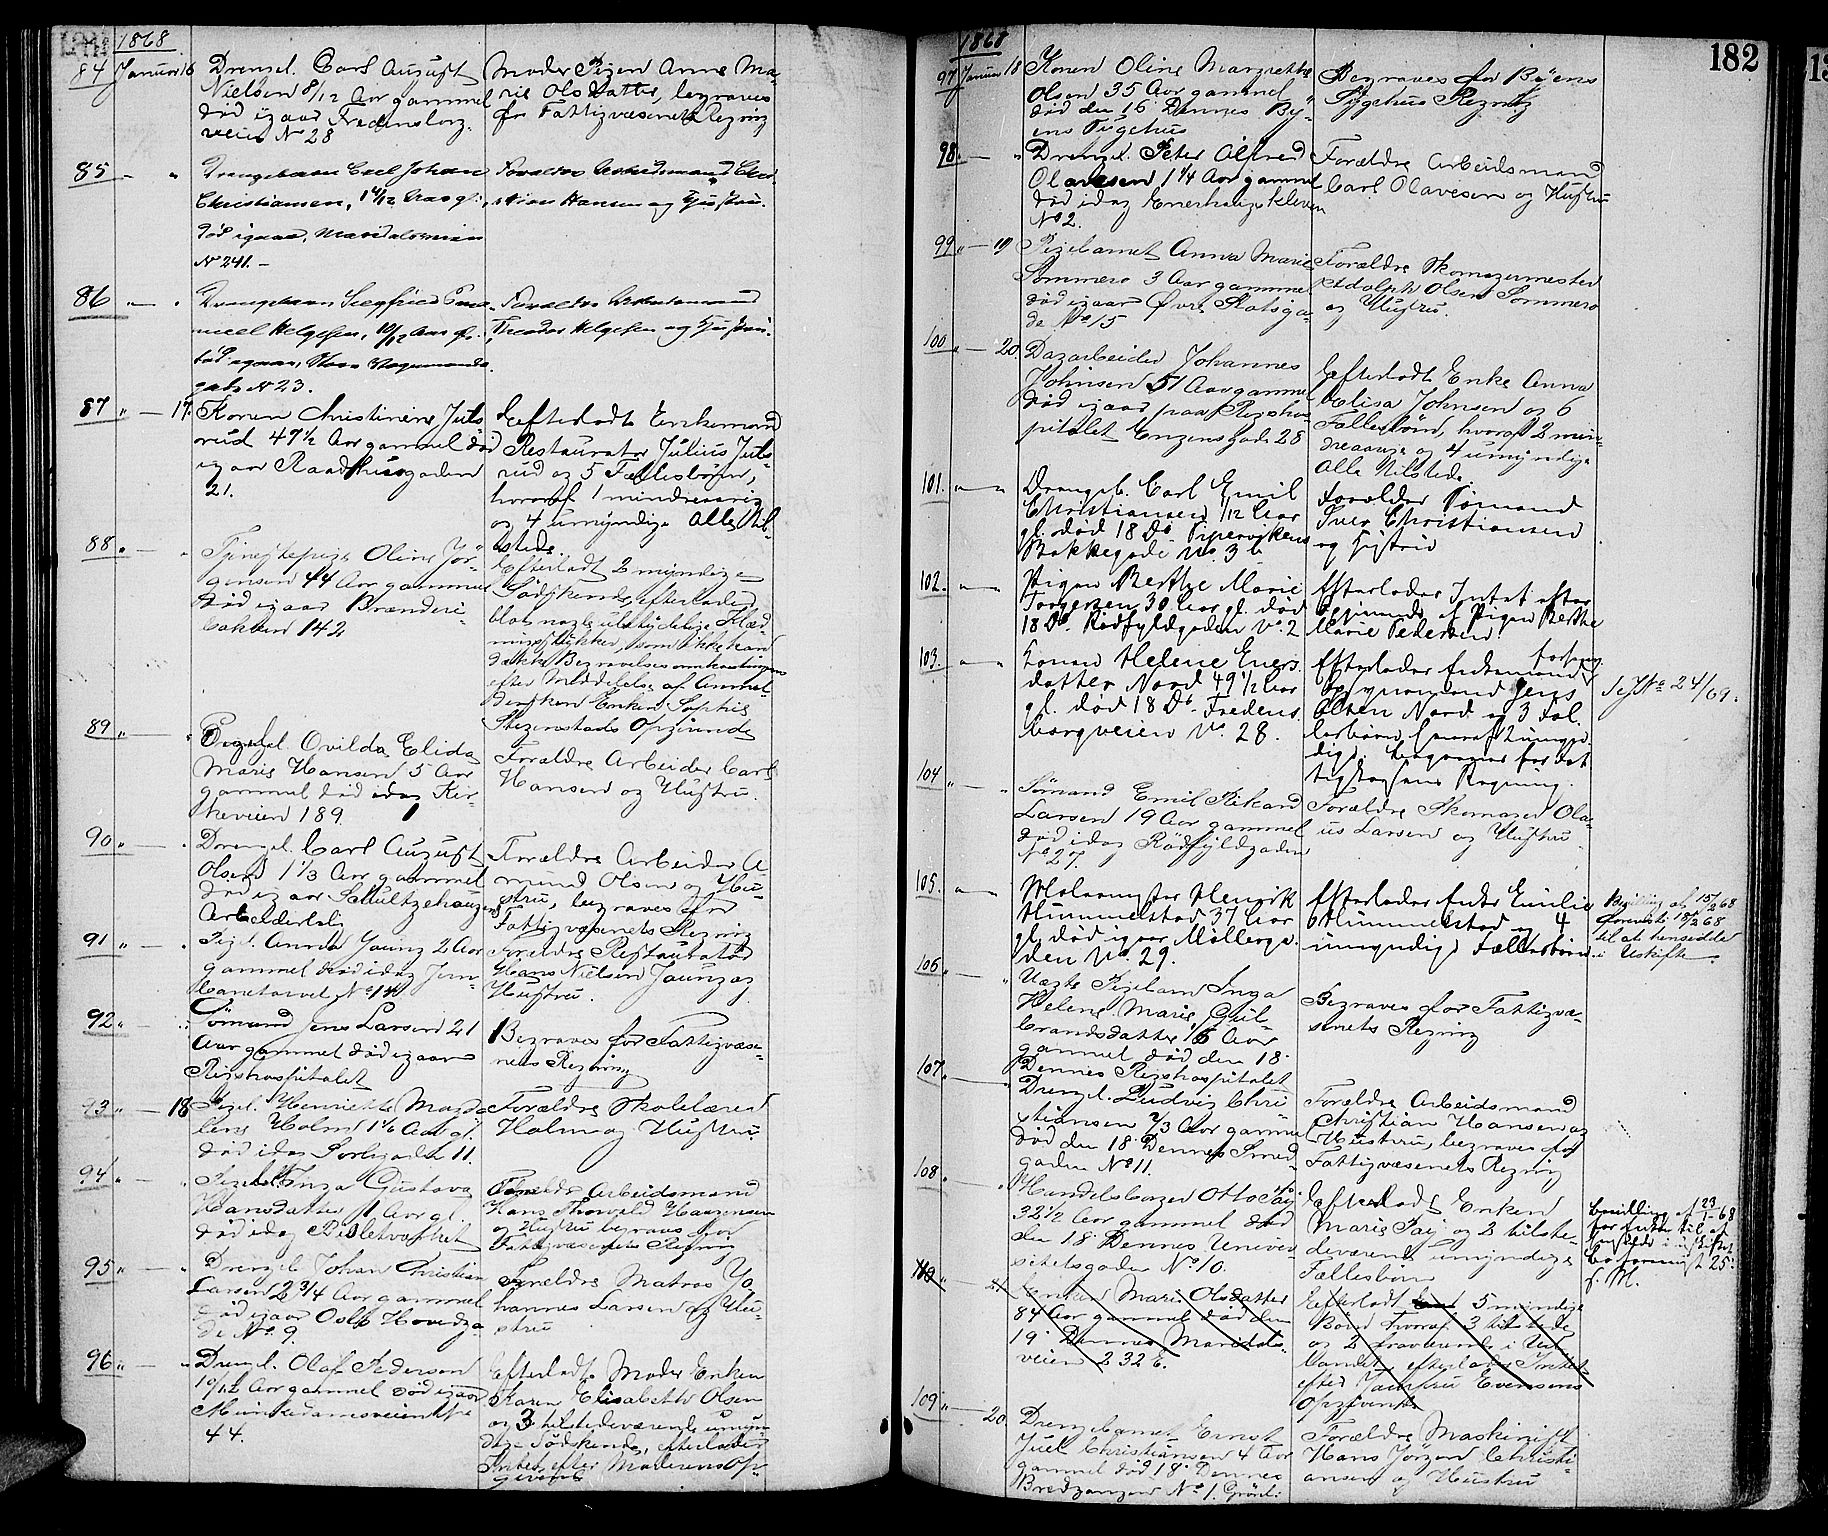 1868
84 Januar 16 Drengeb. Carl August
Nielsen 8/12 Aar gammel
død igaar Fredensborg-
veien No 28
Moder Pigen Anne Ma-
rie Olsdatter, begraves
for Fattigvæsenets Regning
85 Drengebarn Carl Johan
Christiansen, 1 4/12 Aar gl.,
død igaar, Maridalsveien
No 241.
Forældre Arbeidsmand Chri-
stian Hansen og Hustru.
86 Drengebarn Siegfried
Helgesen, 10/12 Aar gl.
død igaar,
gade No 23.
Forældre Arbeidsmand
Theodor Helgesen og Hustru.
87 17. Konen Christine Juls-
rud 47 1/2 Aar gammel død
igaar Raadhusgaden
21.
Efterladt Enkemand
Restauratør Julius Juls-
rud og 5 Fællesbørn,
hvoraf 1 mindreaarig
og 4 umyndige Alle til-
stede.
88 Tjenestepige Oline Jør-
gensen 44 Aar gammel
død igaar Brænderi-
bakken 142
Efterladt 2 myndige
Sødskende, efterladen
blot nogle ubetydelige Klæd-
ningsstykker, som ikke kan
dække Begravelsesomkostningerne
efter Meddelelse af Anmel-
dersken Enken Sophie
Stegenstads Opgivende
89 Pigeb. Ovilda Elida
Marie Hansen 5 Aar
gammel død idag Kir-
keveien 189
Forældre Arbeider Carl
Hansen og Hustru.
90 Drengeb. Carl August
Olsen 1 1/3 Aar gammel
død igaar Schultzehaugens
Arbeiderbolig
Forældre Arbeider A-
mund Olsen og Hu-
stru, begraves for
Fattigvæsenets Regning
91 Pigeb. Anna Jaung 2 Aar
gammel død idag Jern-
banetorvet No 14
Forældre Restauratør
Hans Nielsen Jaung og
Hustru.
92 Sømand Jens Larsen 21
Aar gammel død igaar
Rigshospitalet
Begraves for Fattigvæse-
nets Regning
93 18 Pigeb. Henriette Magda-
lene Holm 1 1/6 Aar gl.
død idag Storgaden 11.
Forældre Skolelærer
Holm og Hustru.
94 Pigeb. Inga Gustava
Hansdatter 1 Aar gl.
død idag Pilletvasket
Forældre Arbeidsmand
Hans Thorvald Haagensen
og Hustru begraves for
Fattigvæsenets Regning
95 Drengeb. Johan Christian
Larsen 2 3/4 Aar gammel
død igaar Oslo Hovedga-
de No. 9.
Forældre Matros Jo-
hannes Larsen og Hu-
stru
96 Drengeb. Olaf Pedersen
10/12 Aar gammel død igaar
Munkedamsveien No
44.
Efterladt Moder Enken
Karen Elisabeth Olsen
og 3 tilstedeværende umyn-
dige Sødskende, efterlader
Intet efter Moderens Op-
givende
1868
182
97 Januar 18 Konen Oline Margrethe
Olsen 35 Aar gammel
død den 16 Dennes By-
ens Sygehus
Begraves for Byens
Sygehus Regning
98. Drengeb. Peter Alfred
Olavesen 1 1/4 Aar gammel
død idag Enerhaugskleven
No 2.
Forældre Arbeidsmand
Carl Olavesen og Hustru
99 19 Pigebarnet Anna Marie
Sommero 3 Aar gammel
død igaar Øvre Slotsga-
de No 15
Forældre Skomagermester
Adolph Olsen Sommero
og Hustru.
100 20. Dagarbeider Johannes
Johnsen 51 Aar gammel
død igaar paa Rigshos-
pitalet Enggens Gade 28
Efterladt Enke Anna
Elisa Johnsen og 6
Fællesbørn, hvoraf 2 min-
dreaarige og 4 umyndige
Alle tilstede.
101. Drengeb. Carl Emil
Christiansen 1/12 Aar
gl. død 18 Ds. Pipervikens
Bakkegade No. 3 b
Forældre Sømand
Iver Christiansen
og Hustru
102. Pigen Berthe Marie
Torgersen 30 Aar gl. død
18 Ds. Rødfyldgaden No. 2
Efterlader Intet efter
Opgivende af Pigen Berthe
Marie Pedersen.
103. Konen Helene Evers-
datter Nord 49 1/2 Aar
gl. død 18 Ds. Fredens-
borgveien No. 28.
Efterlader Enkemand forhenv.
Opsynsmand Jens
Olsen Nord og 3 Fæl-
lesbørn hvoraf 2 umyn-
dige, begraves for Fat-
tigkassens Regning.
24/69.
104 Sømand Emil Rikard
Larsen 19 Aar gammel
død idag Rødfyldgaden
No 27.
Forældre Skomager Ola-
us Larsen og Hustru
105. Malermester Henrik
Hummelstad 37 Aar
gl. død igaar Møllerga-
den No. 29.
Efterlader Enke Emilie
Hummelstad og 4
umyndige Fællesbørn
Bevilling af 15/2 68
forevist 18/2 68
til at hensidde
i Uskifte
106 Uægte Pigebarn Inga
Helene Marie Gul-
brandsdatter 1/6 Aar
gammel død den 18.
Dennes Rigshospitalet
Begraves for Fattigvæ-
senets Regning
107 Drengeb. Ludvig Chri-
stiansen 2/3 Aar gammel
død den 18. Dennes Smed-
gaden No 11.
Forældre Arbeidsmand
Christian Hansen og
Hustru, begraves for
Fattigvæsenets Regning
108. Handelsborger Otto Saj
32 1/2 Aar gammel død
den 18. Dennes Univer-
sitetsgaden No 10.
Efterladt Enken
Marie Saj og 2 tilste-
deværende umyndige
Fællesbørn
Bevilling af 23/1 68
for Enken til at
hensidde i uskiftet
Bo forevist 25.
s. M.
110 21 Enken Marie Olsdatter
84 Aar gammel død den
19. Dennes Maridals-
veien 232 E.
Efterladt 5 myndige
Børn hvoraf 3 tilstede
og 2 fraværende i Ud-
landet, efterlader Intet
efter Jomfru Evensens
Opgivende
109 20. Drengebarnet Ernst
Juel Christiansen 4 Aar
gammel død 18. Dennes
Bredgangen No 1. Grønl.
Forældre Maskinist
Hans Jørgen Christi-
ansen og Hustru